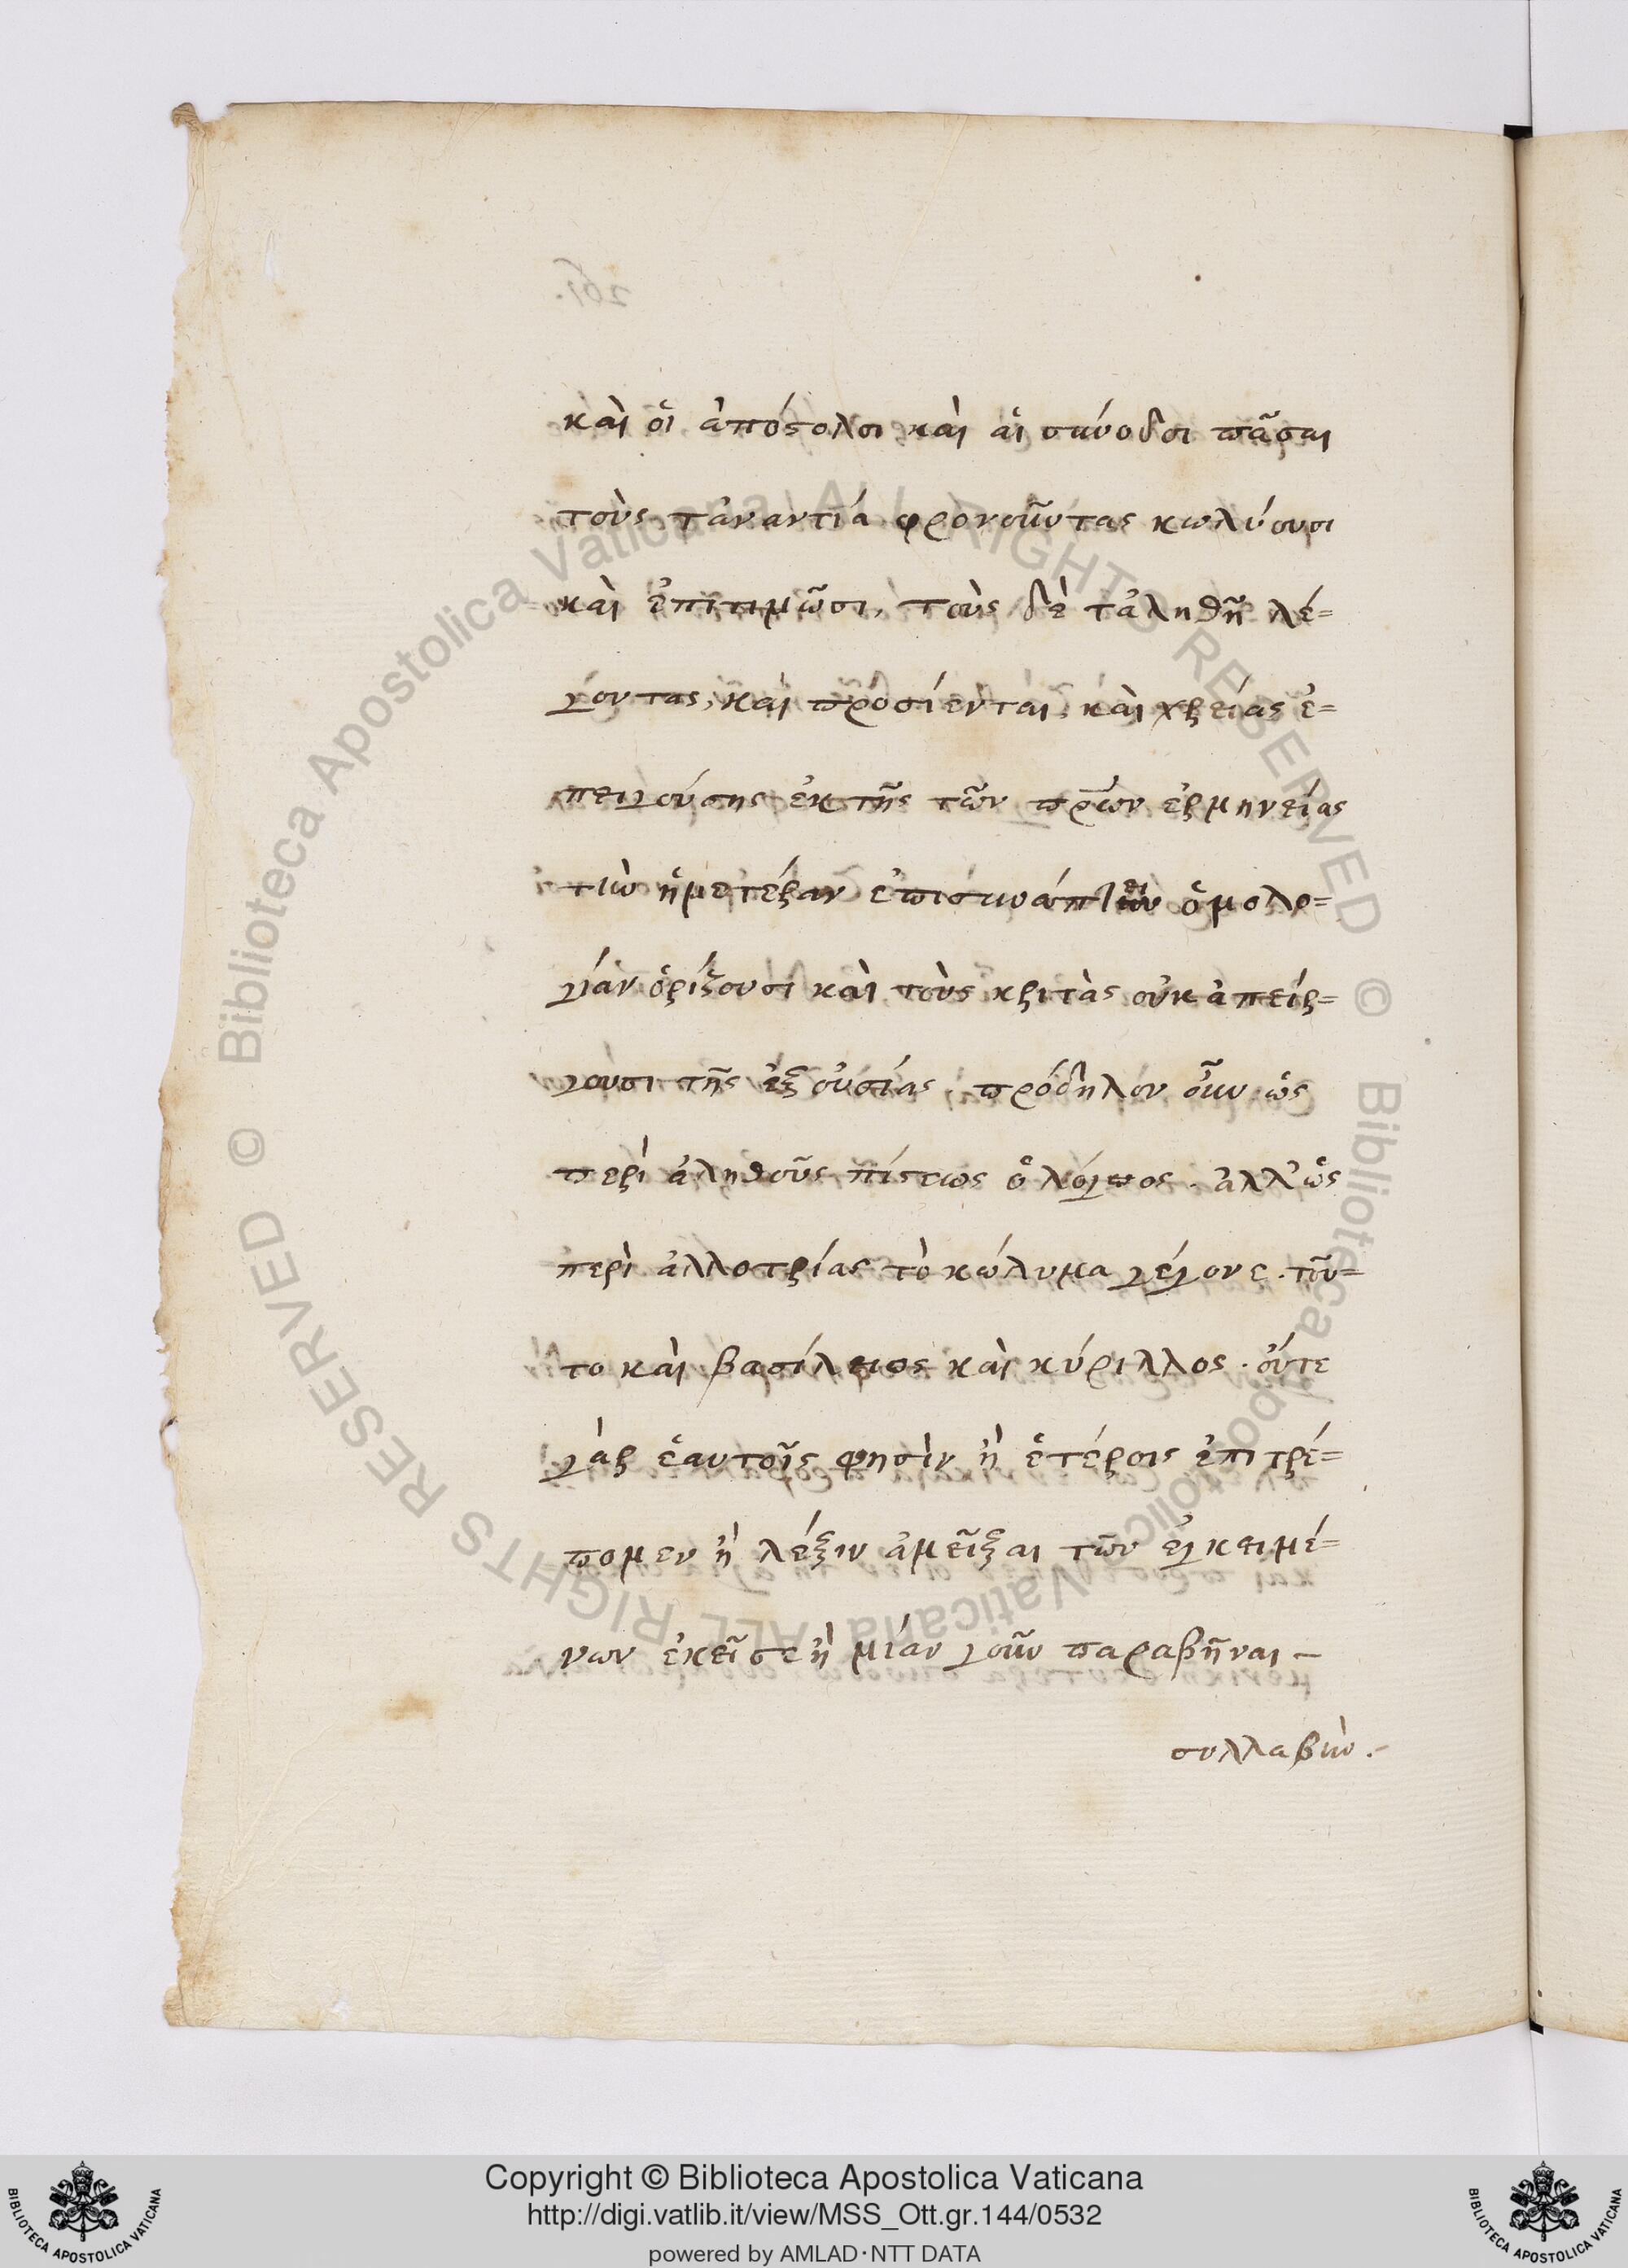 καὶ οἱ ἀπόστολοι καὶ αἱ σύνοδοι πᾶσαι
τοὺς τἀναντία φρονοῦντας κωλύουσι
καὶ ἐπιτιμῶσι, τοὺς δὲ τἀληθῆ λέ=
γοντας, καὶ προσίενται καὶ χρείας ἐ=
πειγούσης ἐκ τῆς τῶν πρων ἑρμηνείας
τὴν ἡμετέραν ἐπισυνάπτειν ὁμολο=
γίαν ὁρίζουσι καὶ τοὺς κριτὰς οὐκ ἀπείρ=
γουσι τῆς ἐξουσίας. πρόδηλον οὖν ὡς
περὶ ἀληθοῦς πίστεως ὁ λόγος. ἀλλ' ὡς
περὶ ἀλλοτρίας τὸ κώλυμα γέγονε. τοῦ=
το καὶ βασίλειος καὶ κύριλλος. οὔτε
γὰρ ἑαυτοῖς φησὶν ἢ ἑτέροις ἐπιτρέ=
πομεν ἢ λέξιν ἀμεῖξαι τῶν ἐγκειμέ=
νων ἐκεῖσε ἢ μίαν γοῦν παραβῆναι –
συλλαβὴν.–
261.
Biblioteca Apostolica Vaticana ALL RIGHTS RESERVED ©
Biblioteca Apostolica Vaticana ALL RIGHTS RESERVED ©
BIBLIOTECA APOSTOLICA VATICANA
Copyright © Biblioteca Apostolica Vaticana
http://digi.vatlib.it/view/MSS_Ott.gr.144/0532
powered by AMLAD·NTT DATA
BIBLIOTECA APOSTOLICA VATICANA